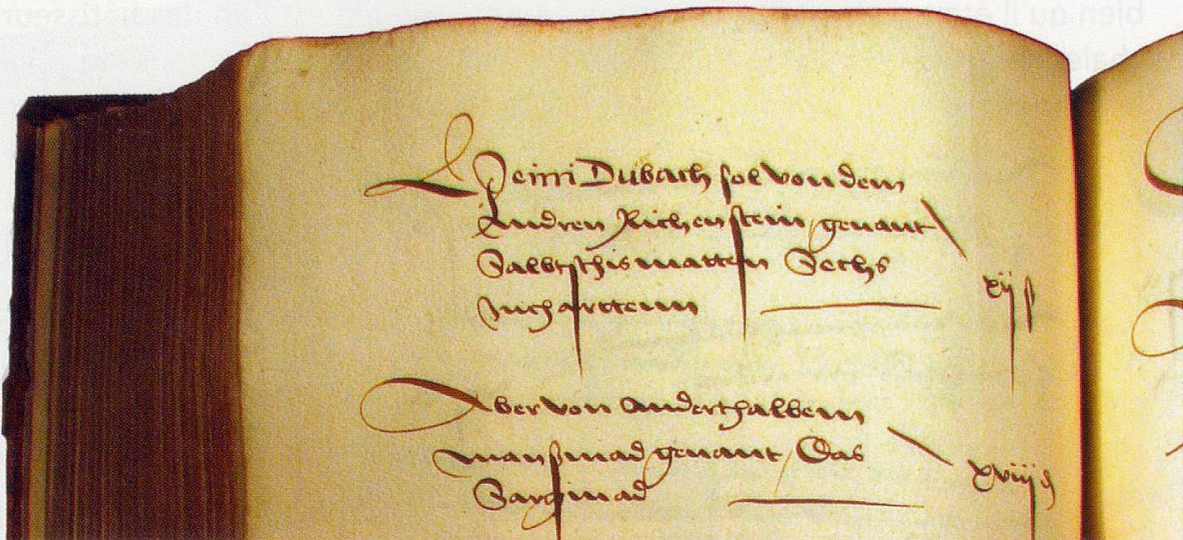 Heini Dubach sol von dem
Andren Richenstein genant
Salbtschis matten Sechs
Jucharttenn
xij ß
Aber von anderthalbem
mansmad genant Das
Sagmad
xviij d